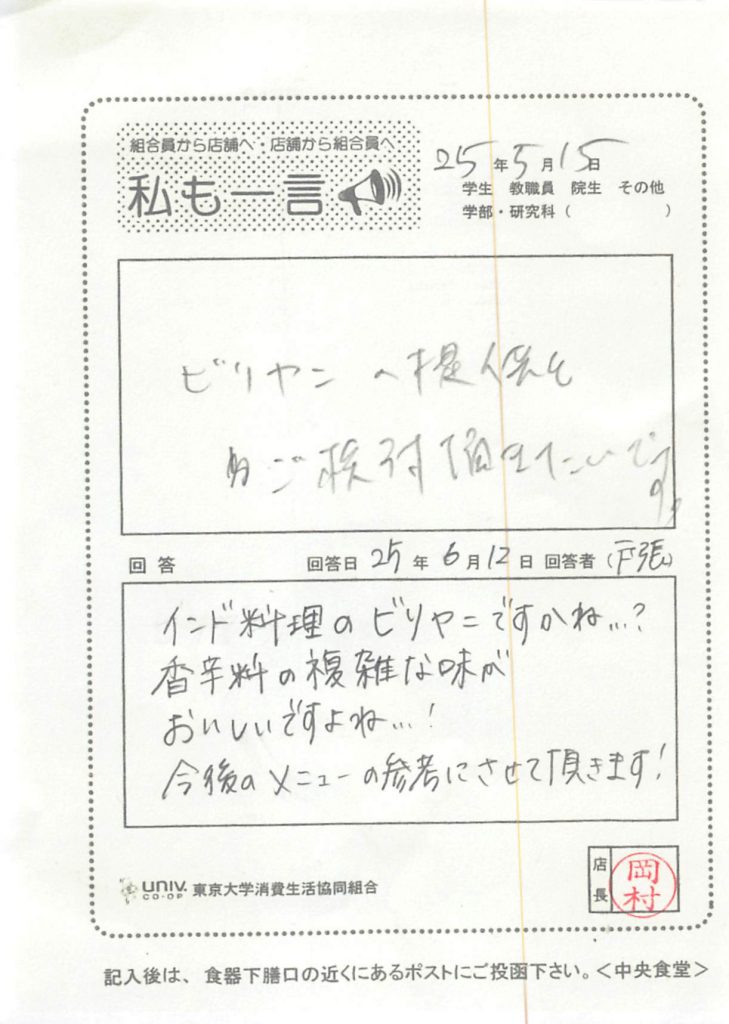 組合員から店舗へ・店舗から組合員へ
私も一言
25年5月15日
学生 教職員 院生 その他
学部・研究科（ ）
ビリヤン の提供も
ご検討頂きたいです。
回答 回答日 25年6月12日 回答者（戸張）
インド料理のビリヤニですかね…？
香辛料の複雑な味が
おいしいですよね…！
今後のメニューの参考にさせて頂きます！
UNIV. CO-OP 東京大学消費生活協同組合
店長 岡村
記入後は、食器下膳口の近くにあるポストにご投函下さい。＜中央食堂＞